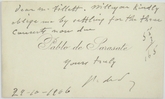 Dear Mr Follett. Will you kindly
oblige me by settling for the three
Concerts now due
Pablo de Sarasate
Yours truly
P. de S.
29-10-1906